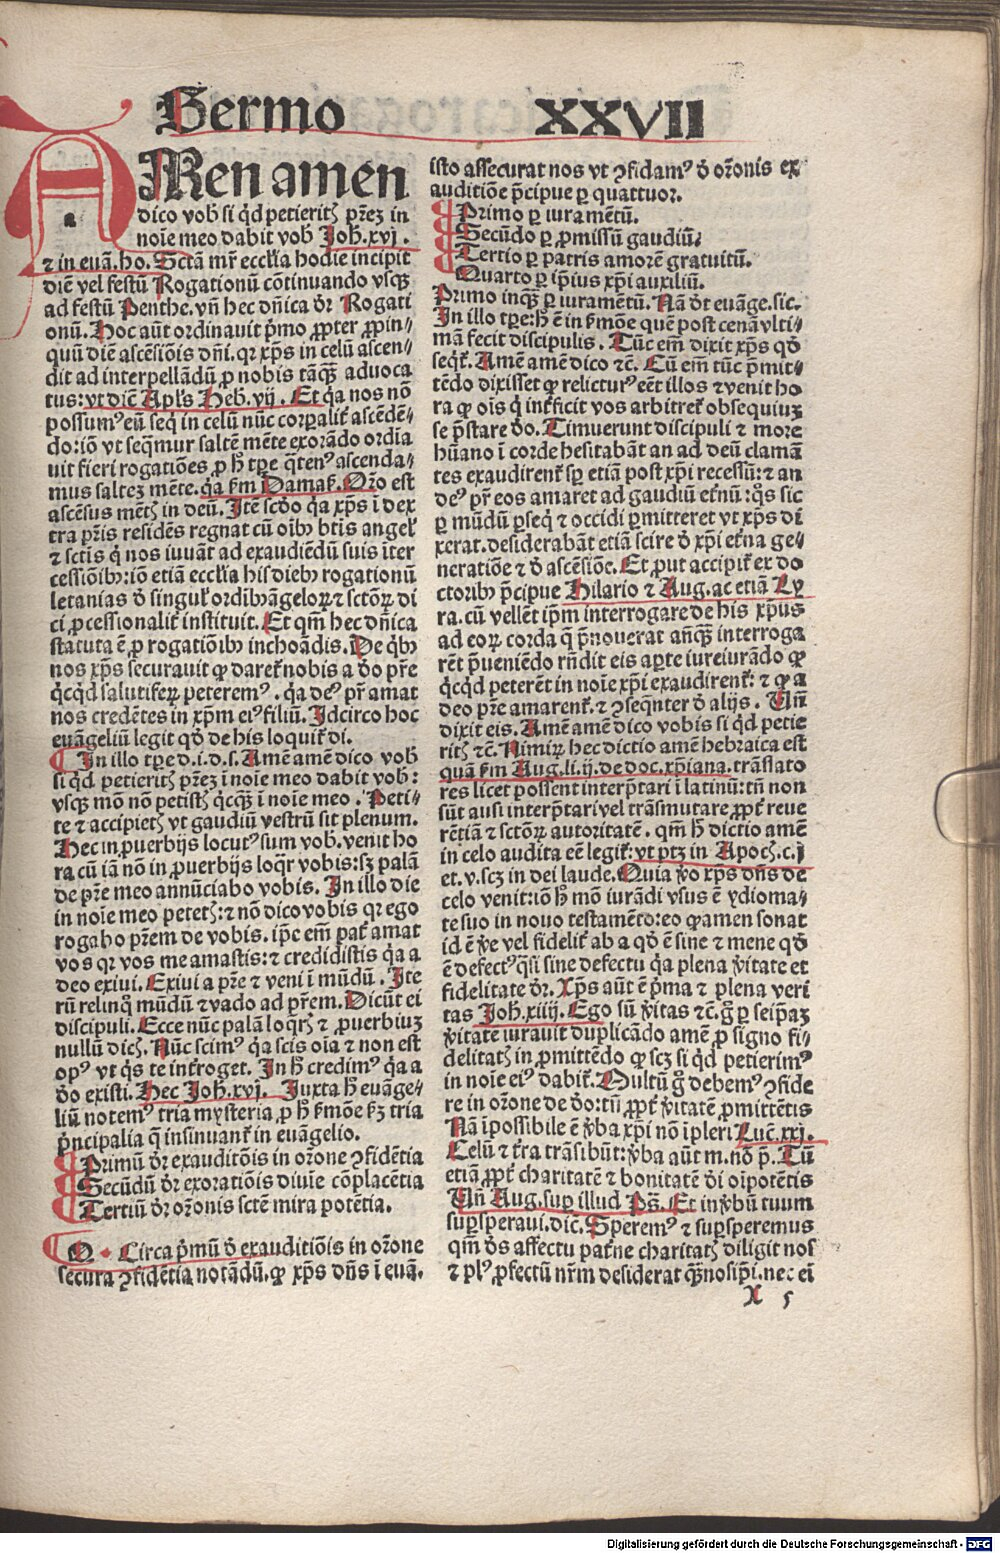 Sermo XXVII
AMen amen
dico vob̄ si q̇d petierit᷒ prēz in
noīe meo dabit vob̄ Joh̄.xvj.
⁊ in euā.ho. Sctā mr̄ eccl̄ia hodie incipit
diē vel festū Rogationū cōtinuando vsqꝫ
ad festū Penthe. vn̄ hec dn̄ica dr̄ Rogati
onū. Hoc aūt ordinauit p̄mo ꝓpter ꝓpin⸗
quū diē ascēsiōis dn̄i. qr xp̄s in celū ascen⸗
dit ad interpellādū ꝓ nobis tāqꝫ aduoca
tus: vt diē Apl̄s Heb. vij. Et q̇a nos nō
possumꝰ eū seq̇ in celū nūc corꝑalit̄ ascēdē⸗
do: iō vt seq̄mur saltē mēte exorādo ordīa
uit fieri rogatiōes ꝓ h̄ tꝑe q̄tenꝰ ascenda⸗
mus saltez mēte. q̇a ẜm Damas̄. Orō est
ascēsus mēt᷒ in deū. Itē scd̄o q̇a xp̄s ī dex
tra pr̄is residēs regnat cū oībꝫ btīs angel̄
⁊ sctīs q̇ nos iuuāt ad exaudiēdū suis īter
cessiōibꝫ: iō etiā eccl̄ia his diebꝫ rogationū
letanias d̄ singul̄ ordībꝫ āgeloꝝ ⁊ sctōꝝ di
ci ꝓcessionalit̄ instituit. Et qm̄ hec dn̄ica
statuta ē ꝓ rogatiōibꝫ inchoādis. De q̇bꝫ
nos xp̄s securauit ꝙ daret̄ nobis a d̄o pr̄e
q̇cq̇d salutifeꝝ peteremꝰ. q̇a deꝰ pr̄ amat
nos credētes in xp̄m eiꝰ filiū. Idcirco hoc
euāgeliū legit̄ qd̄ de his loquit̄ di.
¶ In illo tꝑe d.i.d.s. Amē amē dico vob̄
si q̇d petierit᷒ prēz ī noīe meo dabit vob̄:
vsqꝫ mō nō petist᷒ q̇cqꝫ ī noīe meo. Peti⸗
te ⁊ accipiet᷒ vt gaudiū vestrū sit plenum.
Hec in ꝓuerbijs locutꝰ sum vob̄. venit ho
ra cū iā nō in ꝓuerbijs loqr̄ vobis: sꝫ palā
de pr̄e meo annūciabo vobis. In illo die
in noīe meo petet᷒: ⁊ nō dico vobis qr ego
rogabo pr̄em de vobis. ip̄e em̄ pat̄ amat
vos qr vos me amastis: ⁊ credidistis q̇a a
deo exiui. Exiui a pr̄e ⁊ veni ī mūdū. Ite
rū relinq̇ mūdū ⁊ vado ad pr̄em. Dicūt ei
discipuli. Ecce nūc palā loqr᷒ ⁊ ꝓuerbiuꝫ
nullū dic᷒. Nūc scimꝰ q̇a scis oīa ⁊ non est
opꝰ vt q̇s te int̄roget. In h̄ credimꝰ q̇a a
d̄o existi. Hec Joh̄.xvj. Juxta h̄ euāge⸗
liū notemꝰ tria mysteria ꝓ h̄ ẜmōe ẜꝫ tria
p̄ncipalia q̄ insinuant̄ in euāgelio.
¶ Primū dr̄ exauditōis in orōne ꝯfidētia
¶ Secūdū dr̄ exoratiōis diuīe cōplacētia
¶ Tertiū dr̄ orōnis sctē mira potētia.
¶ O. Circa p̄mū d̄ exauditiōis in orōne
secura ꝯfidētia notādū. ꝙ xp̄s dn̄s ī euā.
isto assecurat nos vt ꝯfidamꝰ d̄ orōnis ex
auditiōe p̄cipue ꝑ quattuor.
¶ Primo ꝑ iuramētū.
¶ Secūdo ꝑ ꝓmissū gaudiū;
¶ Tertio ꝑ patris amorē gratuitū.
Quarto ꝑ ip̄ius xp̄i auxiliū.
Primo inq̇ꝫ ꝑ iuramētū. Nā dr̄ euāge. sic.
In illo tꝑe: h̄ ē in ẜmōe quē post cenā vlti⸗
mā fecit discipulis. Tūc em̄ dixit xp̄s qd̄
seq̇t̄. Amē amē dico ⁊c̄. Cū em̄ tūc p̄mit⸗
tēdo dixisset ꝙ relicturꝰ eēt illos ⁊ venit ho
ra ꝙ oīs q̇ int̄ficit vos arbitret̄ obsequiuꝫ
se p̄stare d̄o. Timuerunt discipuli ⁊ more
hūano ī corde hesitabāt an ad deū clamā
tes exaudirent̄ sꝑ etiā post xp̄i recessū: ⁊ an
deꝰ pr̄ eos amaret ad gaudiū et̄nū: q̇s sic
ꝑ mūdū ꝑseq̇ ⁊ occidi ꝑmitteret vt xp̄s di
xerat. desiderabāt etiā scire d̄ xp̄i et̄na ge⸗
neratiōe ⁊ d̄ ascēsiōe. Et ꝓut accipit̄ ex do
ctoribꝫ p̄cipue Hilario ⁊ Aug. ac etiā Ly
ra. cū vellēt ip̄m interrogare de his xp̄us
ad eoꝝ corda q̇ p̄nouerat an̄qꝫ interroga
rēt p̄ueniēdo rn̄dit eis aꝑte iureiurādo ꝙ
q̇cq̇d peterēt in noīe xp̄i exaudirent̄: ⁊ ꝙ a
deo pr̄e amarent̄. ⁊ ꝯseqn̄ter d̄ alijs. Un̄
dixit eis. Amē amē dico vobis si q̇d petie
rit᷒ ⁊c̄. Nimiꝝ hec dictio amē hebraica est
quā ẜm Aug. li. ij. de doc. xp̄iana. trāslato
res licet possent interp̄tari ī latinū: tn̄ non
sūt ausi interp̄tari vel trāsmutare ꝓpt̄ reue
rētiā ⁊ sctōꝝ autoritatē. qm̄ h̄ dictio amē
in celo audita eē legit̄: vt ptꝫ in Apoc᷒. c. j
et. v. scꝫ in dei laude. Quia ꝟo xp̄s dn̄s de
celo venit: iō h̄ mō iurādi vsus ē ydioma⸗
te suo in nouo testamēto: eo ꝙ amen sonat
id ē ꝟe vel fidelit̄ ab a qd̄ ē sine ⁊ mene qd̄
ē defectꝰ q̇si sine defectu q̇a plena ꝟitate et
fidelitate dr̄. Xp̄s aūt ē p̄ma ⁊ plena veri
tas Joh̄.xiiij. Ego sū ꝟitas ⁊c̄. g̊ ꝑ seip̄aꝫ
ꝟitate iurauit duplicādo amē ꝓ signo fi⸗
delitat᷒ in ꝓmittēdo ꝙ scꝫ si q̇d petierimꝰ
in noīe eiꝰ dabit̄. Multū g̊ debemꝰ ꝯfide
re in orōne de d̄o: tū ꝓpt̄ ꝟitatē ꝓmittētis
Nā īpossibile ē ꝟba xp̄i nō īpleri Luc̄. xxj.
Celū ⁊ t̄ra trāsibūt: ꝟba aūt m. nō p̄. Tū
etiā ꝓpt̄ charitatē ⁊ bonitatē di oīpotētis
Un̄ Aug. suꝑ illud Ps̄. Et in ꝟbū tuum
suꝑsperaui. dic̄. Speremꝰ ⁊ suꝑsperemus
qm̄ d̄s affectu pat̄ne charitat᷒ diligit nos
⁊ plꝰ ꝓfectū nr̄m desiderat q̄ꝫ nosip̄i. nec ei
X 5
Digitalisierung gefördert durch die Deutsche Forschungsgemeinschaft - DFG